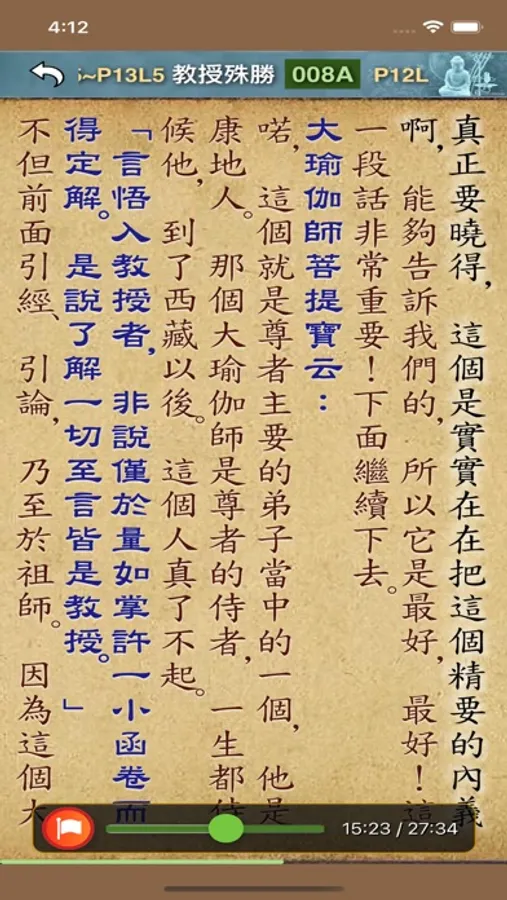 4:12
5~P13L5 教授殊勝 008A P12L
真正要曉得，這個是實實在在把這個精要的內義
啊，能夠告訴我們的，所以它是最好，最好！這
一段話非常重要！下面繼續下去。
大瑜伽師菩提寶云：
喏，這個就是尊者主要的弟子當中的一個，他是
康地人。那個大瑜伽師是尊者的侍者，一生都侍
候他，到了西藏以後。這個人真了不起。
「言悟入教授者，非說僅於量如掌許一小函卷而
得定解。是說了解一切至言皆是教授。」
不但前面引經、引論，乃至於祖師。因為這個大
15:23 / 27:34